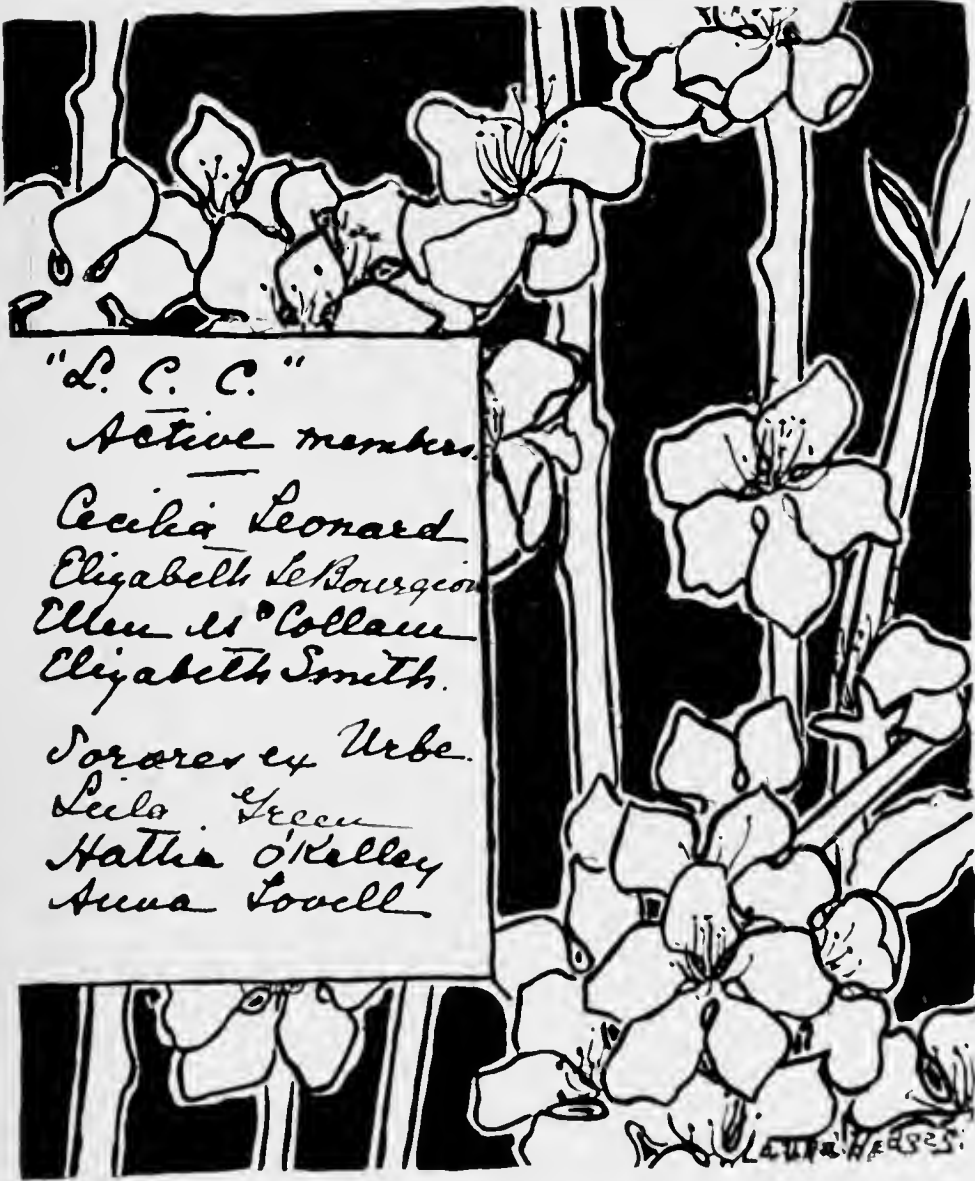 "L. C. C."
Active members.
Cecilia Leonard
Elizabeth LeBourgion
Ellen McCollam
Elizabeth Smith.
Sorores ex Urbe.
Leila Green
Hattie O'Kelley
Anna Lovell